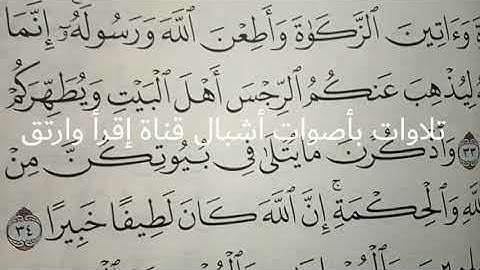 وَءَاتِينَ ٱلزَّكَوٰةَ وَأَطِعْنَ ٱللَّهَ وَرَسُولَهُۥٓ إِنَّمَا
لِيُذْهِبَ عَنكُمُ ٱلرِّجْسَ أَهْلَ ٱلْبَيْتِ وَيُطَهِّرَكُمْ
تلاوات بأصوات أشبال قناة إقرأ وارتق
٣٣ وَٱذْكُرْنَ مَا يُتْلَىٰ فِى بُيُوتِكُنَّ مِنْ
وَٱلْحِكْمَةِ ۚ إِنَّ ٱللَّهَ كَانَ لَطِيفًا خَبِيرًا ٣٤